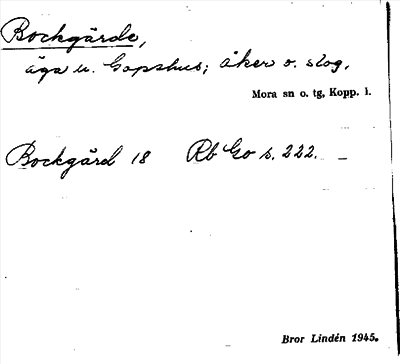 Bockgärde,
äga u. Gopshus; åker o. slog.
Mora sn o. tg, Kopp. l.
Bockgärd 18 Rb Go s. 222. –
Bror Lindén 1945.